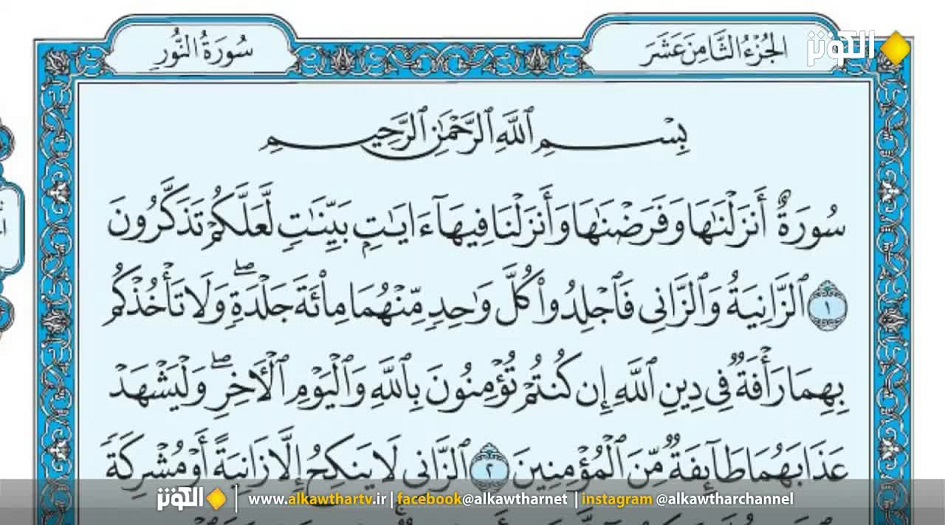 الكوثر
الجُزْءُ الثَّامِنَ عَشَرَ
سُورَةُ النُّورِ
بِسْمِ ٱللَّهِ ٱلرَّحْمَٰنِ ٱلرَّحِيمِ
سُورَةٌ أَنزَلْنَٰهَا وَفَرَضْنَٰهَا وَأَنزَلْنَا فِيهَآ ءَايَٰتِۭ بَيِّنَٰتٍ لَّعَلَّكُمْ تَذَكَّرُونَ
١ ٱلزَّانِيَةُ وَٱلزَّانِى فَٱجْلِدُوا۟ كُلَّ وَٰحِدٍ مِّنْهُمَا مِا۟ئَةَ جَلْدَةٍۖ وَلَا تَأْخُذْكُم
بِهِمَا رَأْفَةٌ فِى دِينِ ٱللَّهِ إِن كُنتُمْ تُؤْمِنُونَ بِٱللَّهِ وَٱلْيَوْمِ ٱلْـَٔاخِرِۖ وَلْيَشْهَدْ
عَذَابَهُمَا طَآئِفَةٌ مِّنَ ٱلْمُؤْمِنِينَ ٢ ٱلزَّانِى لَا يَنكِحُ إِلَّا زَانِيَةً أَوْ مُشْرِكَةً
الكوثر | www.alkawthartv.ir | facebook@alkawtharnet | instagram @alkawtharchannel